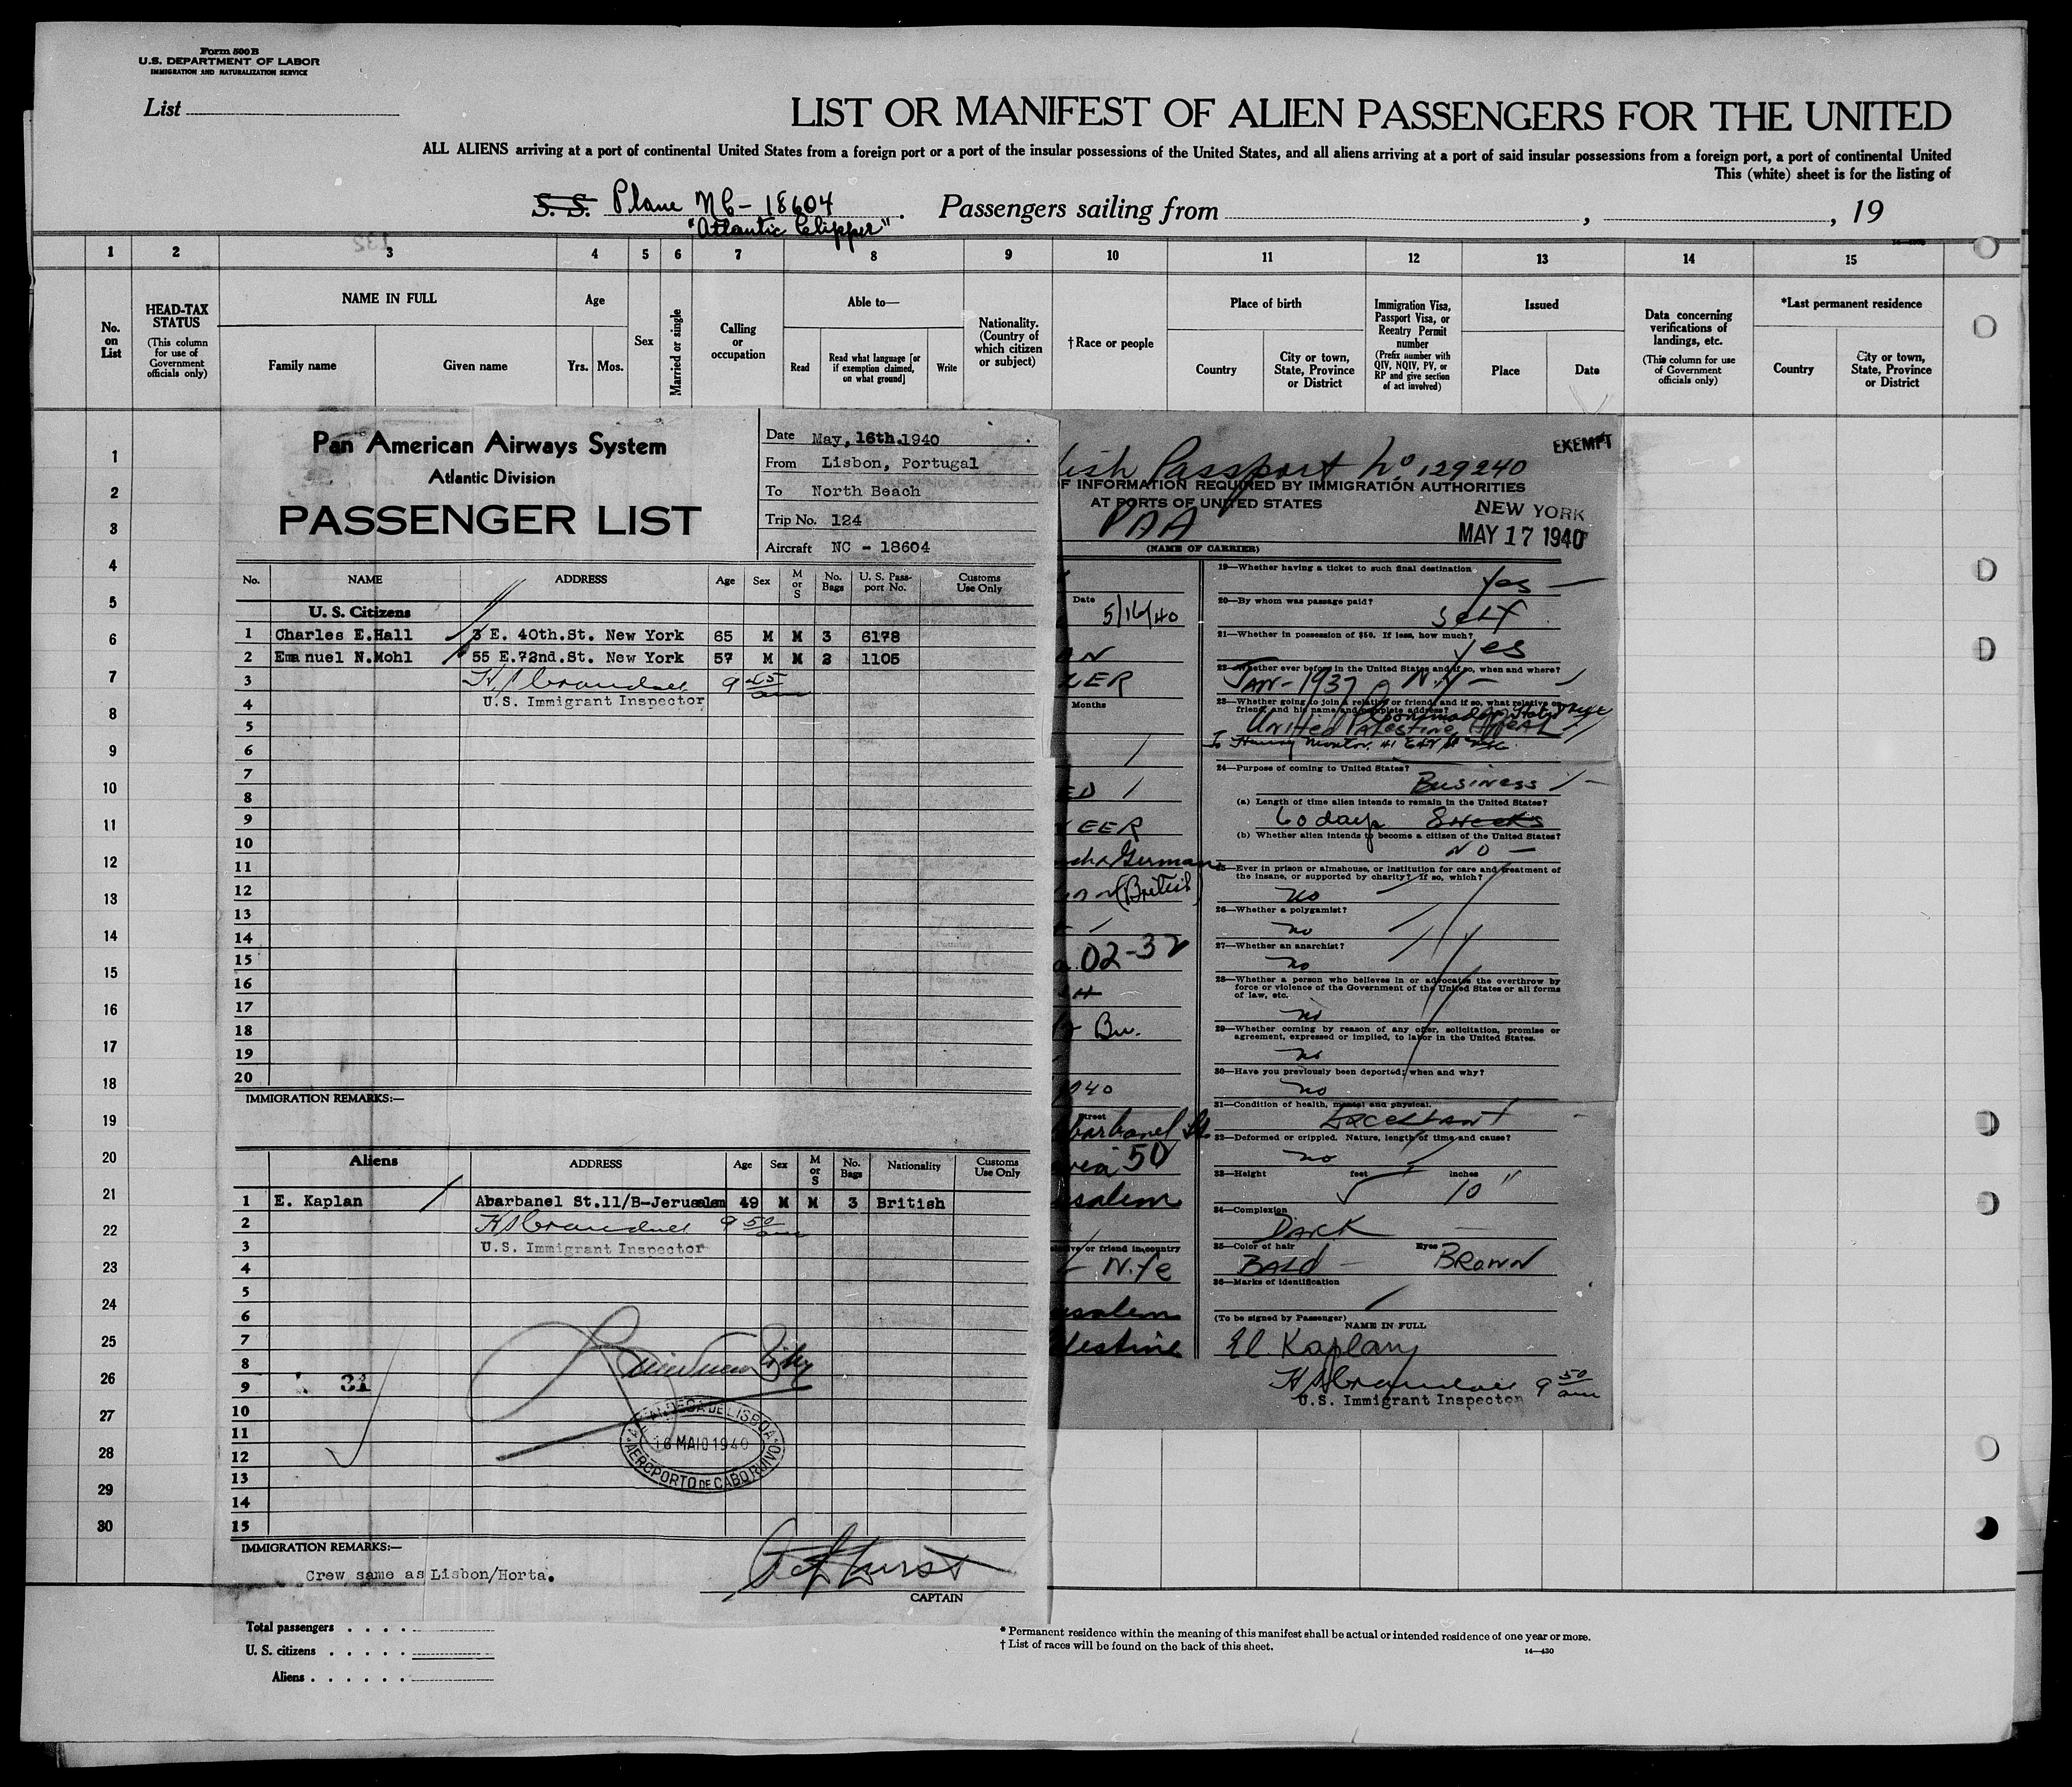 Form 500 B
U.S. DEPARTMENT OF LABOR
IMMIGRATION AND NATURALIZATION SERVICE
List
LIST OR MANIFEST OF ALIEN PASSENGERS FOR THE UNITED
ALL ALIENS arriving at a port of continental United States from a foreign port or a port of the insular possessions of the United States, and all aliens arriving at a port of said insular possessions from a foreign port, a port of continental United
This (white) sheet is for the listing of
S. S. Plane NC-18604 "Atlantic Clipper". Passengers sailing from , , 19
1 2 3 4 5 6 7 8 9 10 11 12 13 14 15
No. on List
HEAD-TAX STATUS (This column for use of Government officials only)
NAME IN FULL
Family name Given name
Age
Yrs. Mos.
Sex
Married or single
Calling or occupation
Able to—
Read
Read what language [or if exemption claimed, on what ground]
Write
Nationality. (Country of which citizen or subject)
†Race or people
Place of birth
Country
City or town, State, Province or District
Immigration Visa, Passport Visa, or Reentry Permit number (Prefix number with QIV, NQIV, PV, or RP and give section of act involved)
Issued
Place Date
Data concerning verifications of landings, etc. (This column for use of Government officials only)
*Last permanent residence
Country
City or town, State, Province or District
1
2
3
4
5
6
7
8
9
10
11
12
13
14
15
16
17
18
19
20
21
22
23
24
25
26
27
28
29
30
Pan American Airways System
Atlantic Division
PASSENGER LIST
Date May, 16th.1940
From Lisbon, Portugal
To North Beach
Trip No. 124
Aircraft NC - 18604
No. NAME ADDRESS Age Sex M or S No. Bags U. S. Passport No. Customs Use Only
U. S. Citizens
1 Charles E.Hall 3 E. 40th.St. New York 65 M M 3 6178
2 Emanuel N.Mohl 55 E.72nd.St. New York 57 M M 2 1105
3 9 45 am
4 U.S. Immigrant Inspector
5
6
7
8
9
10
11
12
13
14
15
16
17
18
19
20
IMMIGRATION REMARKS:—
Aliens ADDRESS Age Sex M or S No. Bags Nationality Customs Use Only
1 E. Kaplan Abarbanel St.11/B-Jerusalem 49 M M 3 British
2 9 50 am
3 U.S. Immigrant Inspector
4
5
6
7
8
9 31
10
11
12
13
14
15
ALFANDEGA DE LISBOA
16 MAIO 1940
AEROPORTO DE CABO RUIVO
IMMIGRATION REMARKS:—
Crew same as Lisbon/Horta.
CAPTAIN
EXEMPT
lish Passport No 129240
F INFORMATION REQUIRED BY IMMIGRATION AUTHORITIES
AT PORTS OF UNITED STATES
NEW YORK
MAY 17 1940
PAA
(NAME OF CARRIER)
Date 5/16/40
Months
German
(British)
02-32
Bu.
1940
Street
barbanel St.
50
salem
tive or friend in country
salem
lestine
19—Whether having a ticket to such final destination
Yes
20—By whom was passage paid?
Self
21—Whether in possession of $50. If less, how much?
Yes
22—Whether ever before in the United States and if so, when and where?
JAN-1937 N.Y
23—Whether going to join a relative or friend and if so, what relative or friend, and his name and complete address?
United Palestine Appeal
24—Purpose of coming to United States?
Business
(a) Length of time alien intends to remain in the United States?
60 days 8 weeks
(b) Whether alien intends to become a citizen of the United States?
NO
25—Ever in prison or almshouse, or institution for care and treatment of the insane, or supported by charity? If so, which?
no
26—Whether a polygamist?
no
27—Whether an anarchist?
no
28—Whether a person who believes in or advocates the overthrow by force or violence of the Government of the United States or all forms of law, etc.
no
29—Whether coming by reason of any offer, solicitation, promise or agreement, expressed or implied, to labor in the United States.
no
30—Have you previously been deported; when and why?
no
31—Condition of health, mental and physical.
Excellant
32—Deformed or crippled. Nature, length of time and cause?
no
33—Height feet inches
5 10 "
34—Complexion
DARK
35—Color of hair Eyes
BALD BROWN
36—Marks of identification
(To be signed by Passenger)
NAME IN FULL
El. Kaplan
9 50 am
U.S. Immigrant Inspector
Total passengers
U. S. citizens
Aliens
* Permanent residence within the meaning of this manifest shall be actual or intended residence of one year or more.
† List of races will be found on the back of this sheet.
14—430